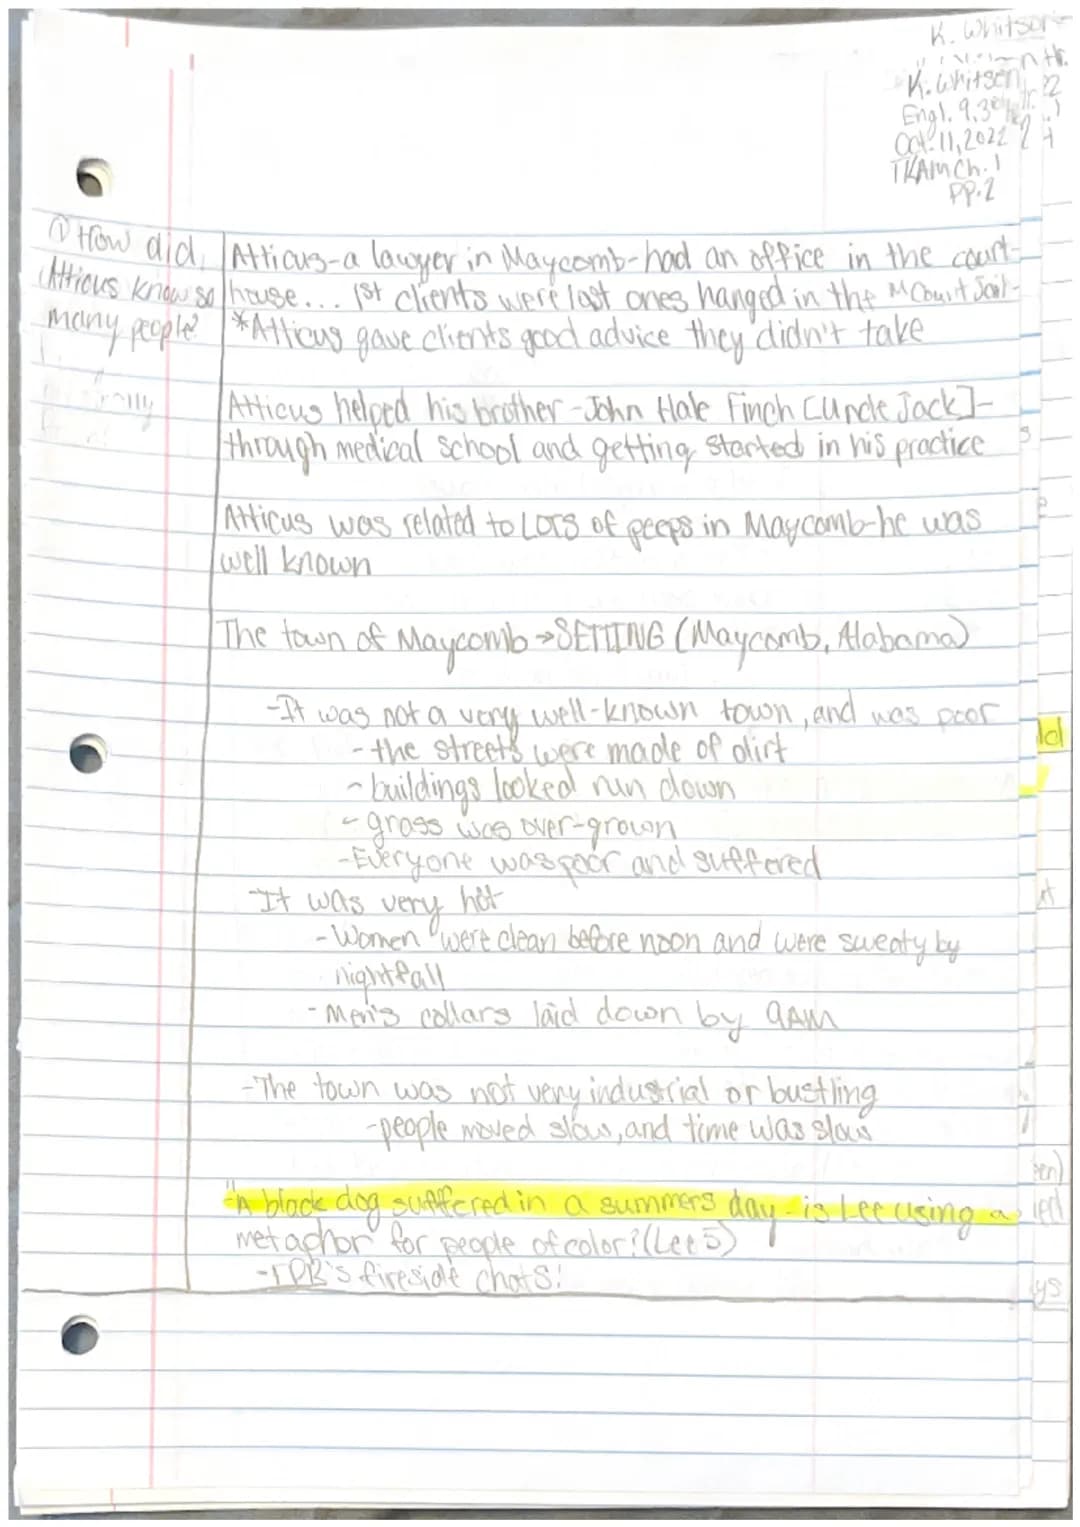 K. Whitsen
K. Whitsen
Engl. 9, 3
Oct. 11, 2022
TKAM Ch. 1
PP. 2
① How did
Atticus know so
many people?
Atticus-a lawyer in Maycomb-had an office in the court-
house... 1st clients were last ones hanged in the M Court Jail-
*Atticus gave clients good advice they didn't take
Atticus helped his brother -John Hale Finch [Uncle Jack]-
through medical school and getting started in his practice
Atticus was related to LOTS of peeps in Maycomb-he was
well known
The town of Maycomb → SETTING (Maycomb, Alabama)
-It was not a very well-known town, and was poor
- the streets were made of dirt
- buildings looked run down
- grass was over-grown
-Everyone was poor and suffered
-It was very hot
- Women were clean before noon and were sweaty by
nightfall
- Men's collars laid down by 9AM
-The town was not very industrial or bustling
-people moved slow, and time was slow
"A black dog suffered in a summers day - is Lee using a
metaphor for people of color? (Lee 5)
-FDR's fireside chats!